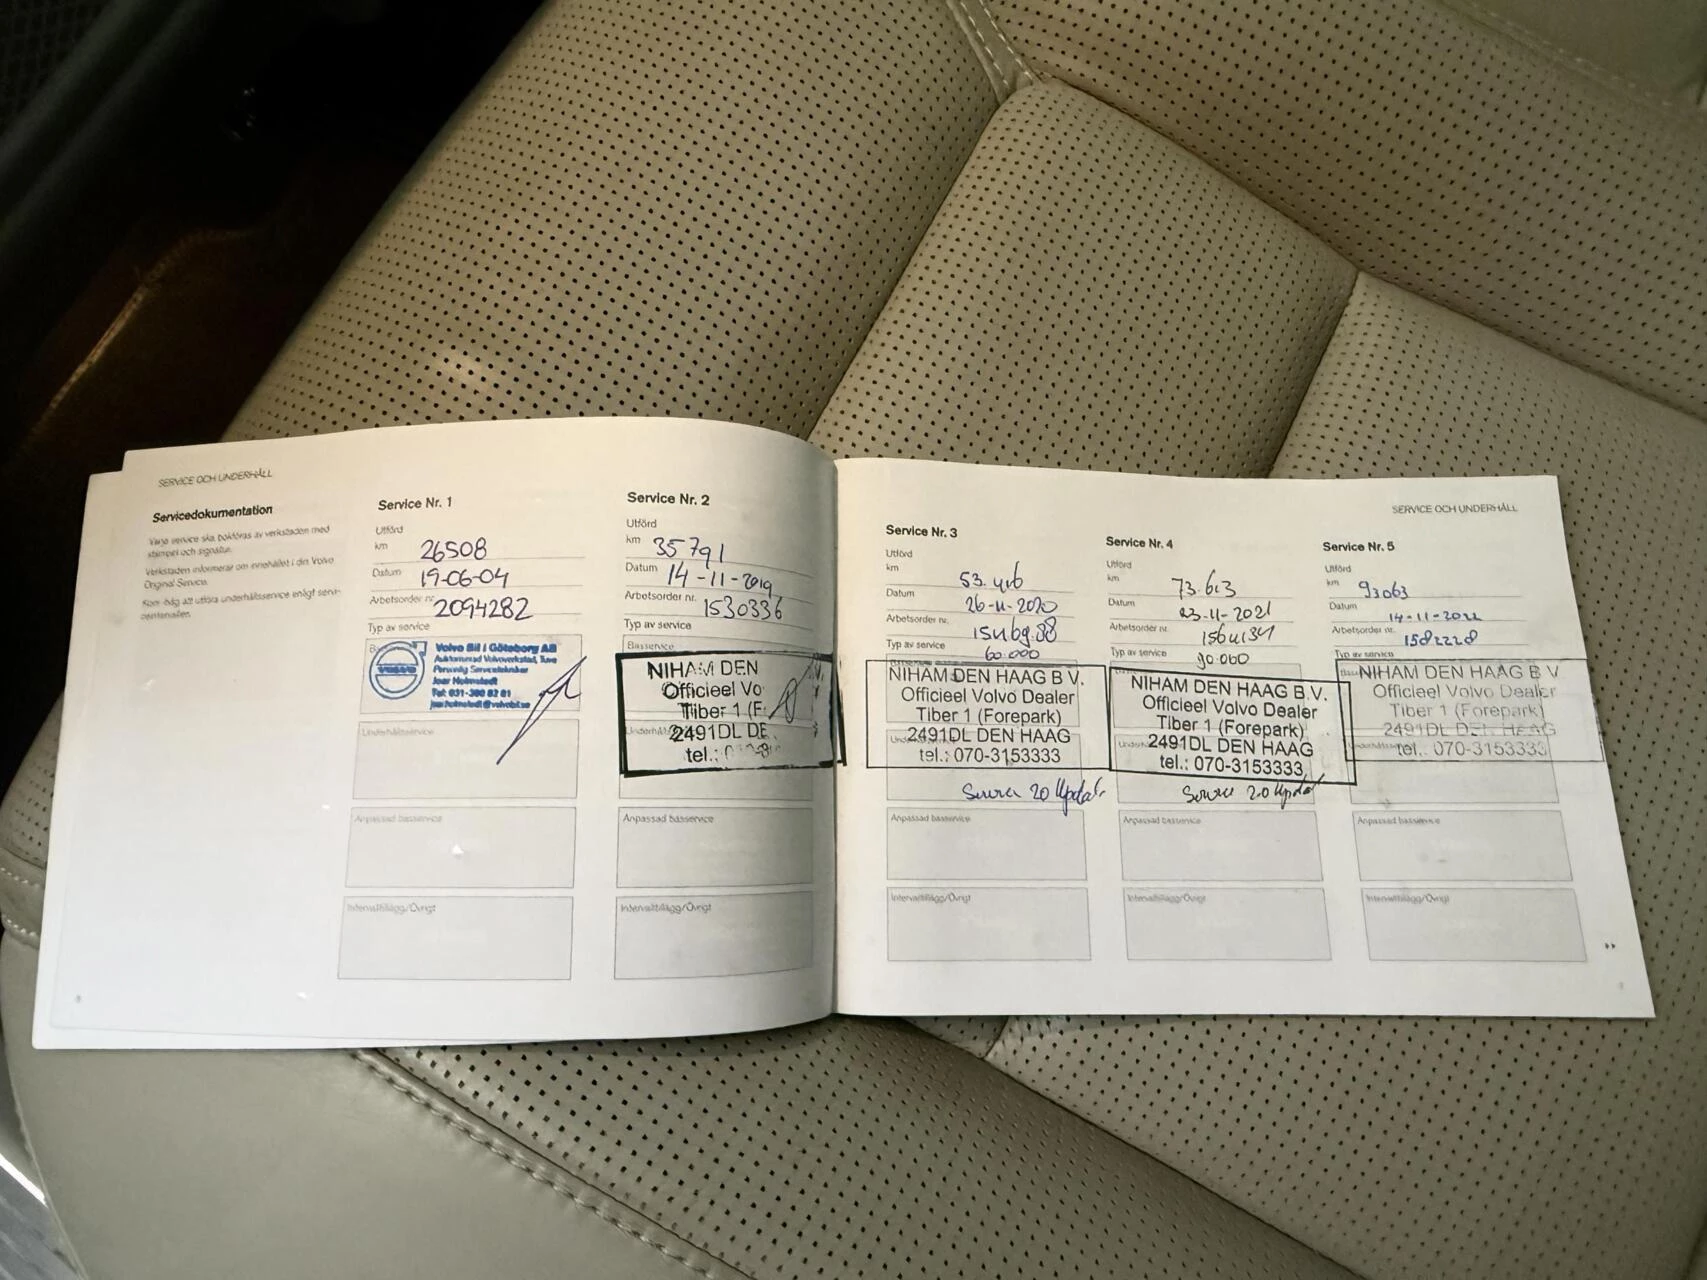 SERVICE OCH UNDERHÅLL
Servicedokumentation
Varje service ska bokföras av verkstaden med
stämpel och signatur.
Verkstaden informerar om innehållet i din Volvo
Original Service.
Kom ihåg att utföra underhållsservice enligt servi-
Service Nr. 1
Utförd
km 26508
Datum 19-06-04
Arbetsorder nr. 2094282
Typ av service
Volvo Bil i Göteborg AB
Auktoriserad Volvoverkstad, Tuve
Personlig Servicetekniker
Joar Holmstedt
Tel: 031-380 82 81
Underhållsservice
Anpassad basservice
Intervalltillägg/Övrigt
Service Nr. 2
Utförd
km 35791
Datum 14-11-2019
Arbetsorder nr. 1530336
Typ av service
Basservice
NIHAM DEN
Officieel Vo
Tiber 1 (F
2491DL DE
tel.:
Anpassad basservice
Intervalltillägg/Övrigt
8
SERVICE OCH UNDERHÅLL
Service Nr. 3
Utförd
km 53.416
Datum 26-11-2020
Arbetsorder nr.
Typ av service 60.000
NIHAM DEN HAAG B.V.
Officieel Volvo Dealer
Tiber 1 (Forepark)
2491DL DEN HAAG
tel.: 070-3153333
Service 2.0 Update
Anpassad basservice
Intervalltillägg/Övrigt
Service Nr. 4
Utförd
km 73.613
Datum 23-11-2021
Arbetsorder nr.
Typ av service 90.000
NIHAM DEN HAAG B.V.
Officieel Volvo Dealer
Tiber 1 (Forepark)
2491DL DEN HAAG
tel.: 070-3153333
Service 2.0 Updat
Anpassad basservice
Intervalltillägg/Övrigt
Service Nr. 5
Utförd
km 93063
Datum 14-11-2022
Arbetsorder nr. 1582228
Typ av service
NIHAM DEN HAAG B.V.
Officieel Volvo Dealer
Tiber 1 (Forepark)
2491DL DEN HAAG
tel.: 070-3153333
Anpassad basservice
Intervalltillägg/Övrigt